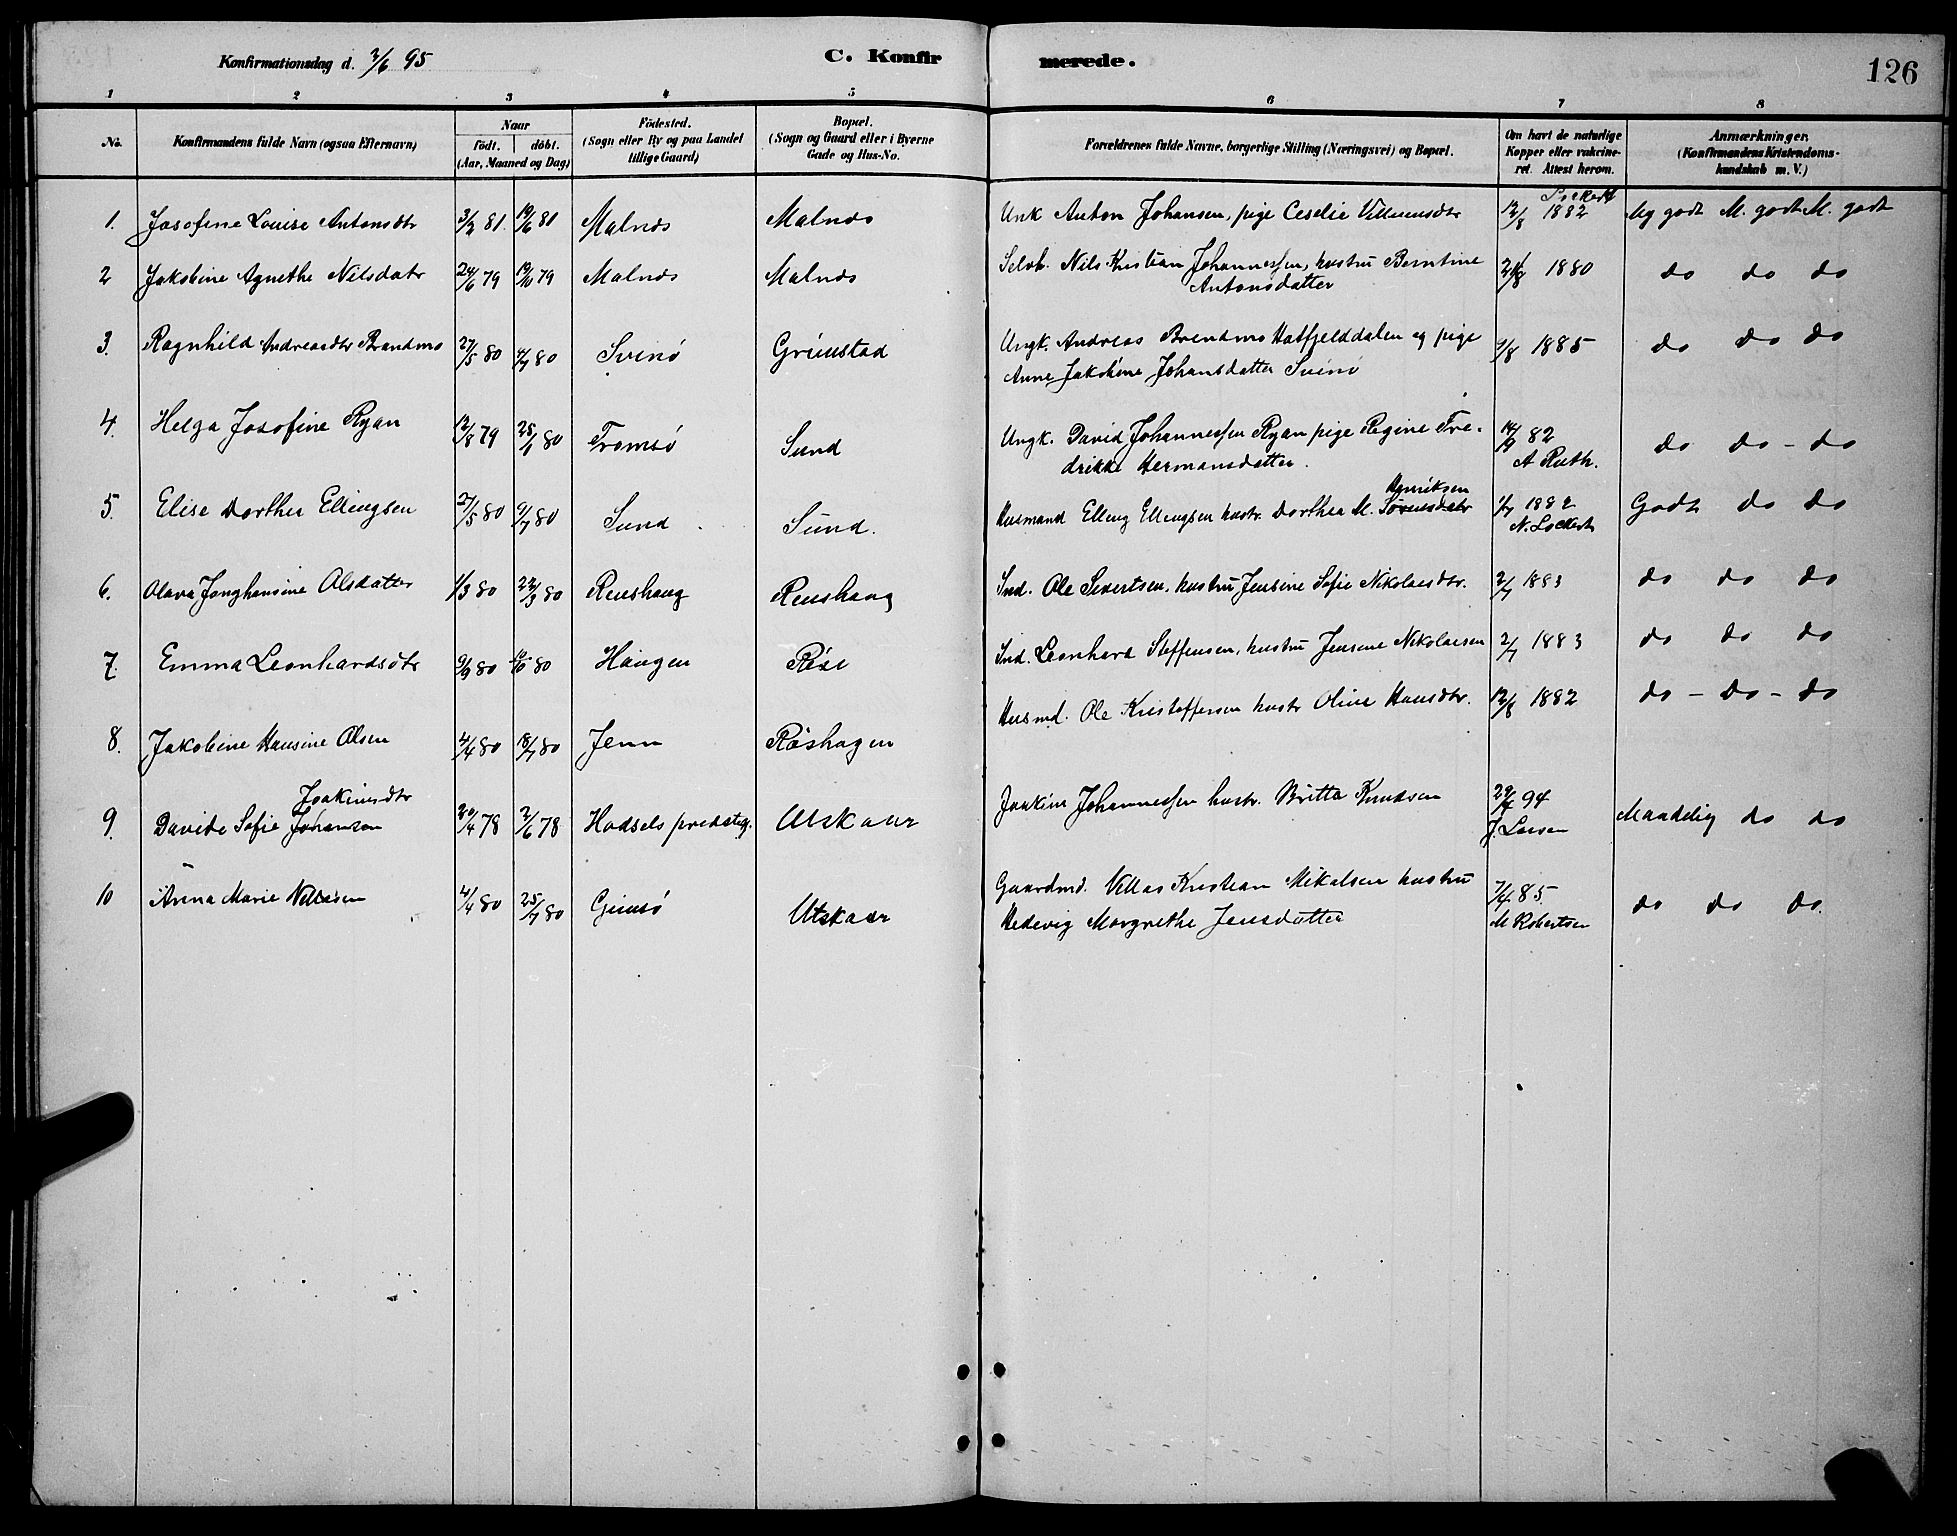 Konfirmationsdag d. 2/6 95
C. Konfirmerede.
126
1 2 3 4 5 6 7 8
No. Konfirmandens fulde Navn (ogsaa Efternavn) Naar födt. döbt. (Aar, Maaned og Dag) Födested. (Sogn eller By og paa Landet tillige Gaard) Bopæl. (Sogn og Gaard eller i Byerne Gade og Hus-No. Forældrenes fulde Navne, borgerlige Stilling (Næringsvei) og Bopæl. Om havt de naturlige Kopper eller vakcineret. Attest herom. Anmærkninger. (Konfirmandens Kristendomskundskab m. V.)
1. Josofine Louise Antonsdtr 3/2 81 19/6 81 Malnes Malnes Unk Anton Johansen, pige Ceselie Villumsdtr 12/8 1882 Lockert Mg godt M. godt M. godt
2 Jakobine Agnethe Nilsdatr 24/6 79 19/10 79 Malnes Malnes Selvb. Nils Kristian Johannessen, hustru Berntine
Antonsdatter 1880 do do do
3. Ragnhild Andreasdtr Brandmo 27/5 80 4/7 80 Svinö Grimstad Ungk. Andreas Brendmo Hatfjelddalen og pige
Anne Jakobine Johansdatter Svinö 1/8 1885 do do do
4. Helga Josofine Ryan 12/8 79 25/1 80 Tromsö Sund Ungk. David Johannessen Ryan pige Regine Fre-
drikke Hermansdatter. 14/9 82 A Ruth. do do - do
5. Elise Dorthea Ellingsen 27/5 80 9/7 80 Sund Sund. Husmand Elling Ellingsen hustr. Dorthea M. Sörensdatr Henriksen 1/7 1882 N. Lockert Godt do do
6. Olava Janghansine Olsdatter 1/3 80 22/3 80 Renshaug Renshaug Ind. Ole Sivertsen, hustru Jensine Sofie Nikolaisdtr. 2/7 1883 do do do
7. Emma Leonhardsdtr 9/9 80 10/10 80 Haugen Röse Ind. Leonhard Steffensen, hustru Jensine Nikolaisen 2/7 1883 do do do
8. Jakobine Hansine Olsen 4/4 80 18/7 80 Jenn Röshagen Husmd. Ole Kristoffersen hustr Oline Hansdtr. 12/8 1882 do - do - do
9. Davide Sofie Johansen Joakimsdtr 20/4 78 2/6 78 Hadsels prestegj. Utskaar Joakim Johannessen hustr. Britta Knudsen 29/4 94 J. Larsen Maadelig do do
10 Anna Marie Villasen 4/4 80 25/7 80 Gimsö Utskaar Gaardmd. Villas Kristian Mikalsen hustru
Hedevig Margrethe Jensdatter 7/4 85. M Robertsen do do do.